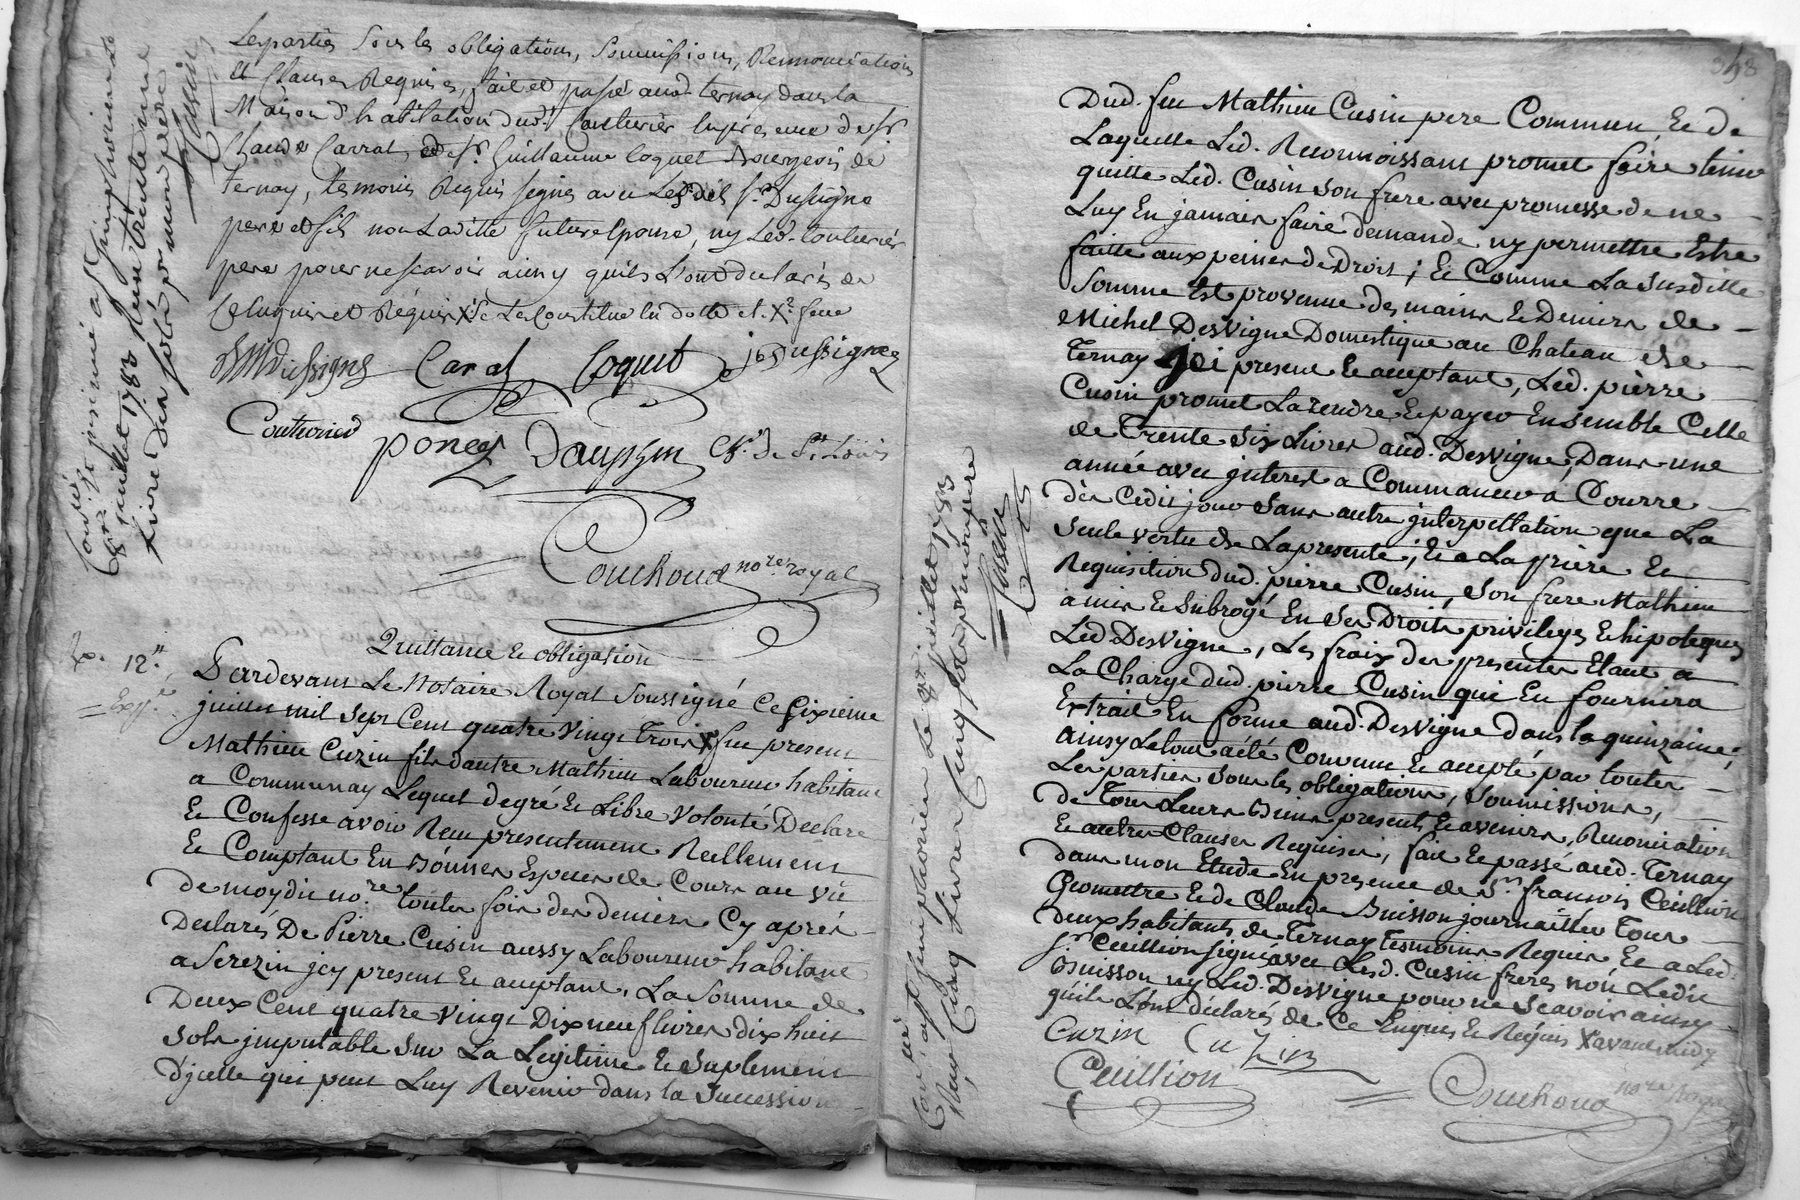 Les parties sous les obligations, Soumissions, Rennonciations
Et Clauses Requises, fait et passé aud. ternay dans la
Maison d'habitation dud. Couturier en présence de Sr
Claude Carrat, et de Sr. Guillaume Coquet Bourgeois de
ternay, temoins Requis signés avec Lesdits Srs Dussigne
pere et fils non Laditte future Epouse, ny Led. Couturier
pere pour ne scavoir ainsy quils L'ont declarés de
Ce Enquis et Requis
Carat Coquet
Dauphin Ch.er de St Loüis
Couchoud no.re royal
8 juillet 1783 Reçu trente une
Livre dix sols pr mon pere
Quittance Et obligation
12.
Pardevant Le Notaire Royal Soussigné Ce Sixieme
juillet mil Sept Cent quatre Vingt Trois X fut present
Mathieu Cuzin fils d'autre Mathieu Laboureur habitant
a Communay Lequel de gré Et Libre Volonté Declare
Et Confesse avoir Reçu presentement Reellement
Et Comptant En Bonnes Especes de Cours au Vû
de moydit no.re toutes fois des deniers Cy aprés
Declarés De Pierre Cusin aussy Laboureur habitant
a Serezin jcy present Et acceptant, La Somme de
Deux Cent quatre Vingt Dix neuf livres dix huit
Sols jmputable Sur La Legitime Et Suplement
D'jcelle qui peut Luy Revenir dans la Succession
8 juillet 1783
Cinq Livres Cinq sols pr mon pere
348
Dud. feu Mathieu Cusin pere Commun, Et de
Laquelle Led. Reconnoissant promet faire tenir
quitte Led. Cusin Son frere avec promesse de ne
Luy En jamais faire demande ny permettre Estre
faitte aux peines de Droit; Et Comme La Susditte
Somme Est provenue des mains Et Deniers de
Michel DesVigne Domestique au Chateau de
Ternay jci present Et acceptant, Led. pierre
Cusin promet La rendre Et payer Ensemble Celle
de Trente Six Livres aud. DesVigne, Dans une
année avec jnterest a Commancer a Courre
dès Cedit jour Sans autre jnterpellation que La
Seule vertu de La presente; Et a La priere Et
Requisition dud. pierre Cusin, Son frere Mathieu
a mis Et Subrogé En Ses Droits privileges Et hipoteques
Led. DesVigne, Les fraix des presentes Etant a
La Charge dud. pierre Cusin qui En fournira
Extrait En forme aud. DesVigne dans la quinzaine;
ainsy Letout a été Convenu Et accepté par toutes
Les parties Sous les obligations, Soumissions,
de Tous Leurs Biens presents Et avenirs, Renonciation
Et autres Clauses Requises, fait Et passé aud. Ternay
dans mon Etude En presence de S.r françois Cuillion
Geomettre Et de Claude Buisson journaillier Tous
deux habitants de Ternay Temoins Requis Et a Led.
S.r Cuillion signé avec Lesd. Cusin freres non Ledit
Buisson ny Led. DesVigne pour ne Scavoir ainsy
quils L'ont declarés de Ce Enquis Et Requis X avant midy
Cuzin Cuzin
Cuillion
Couchoud no.re royal